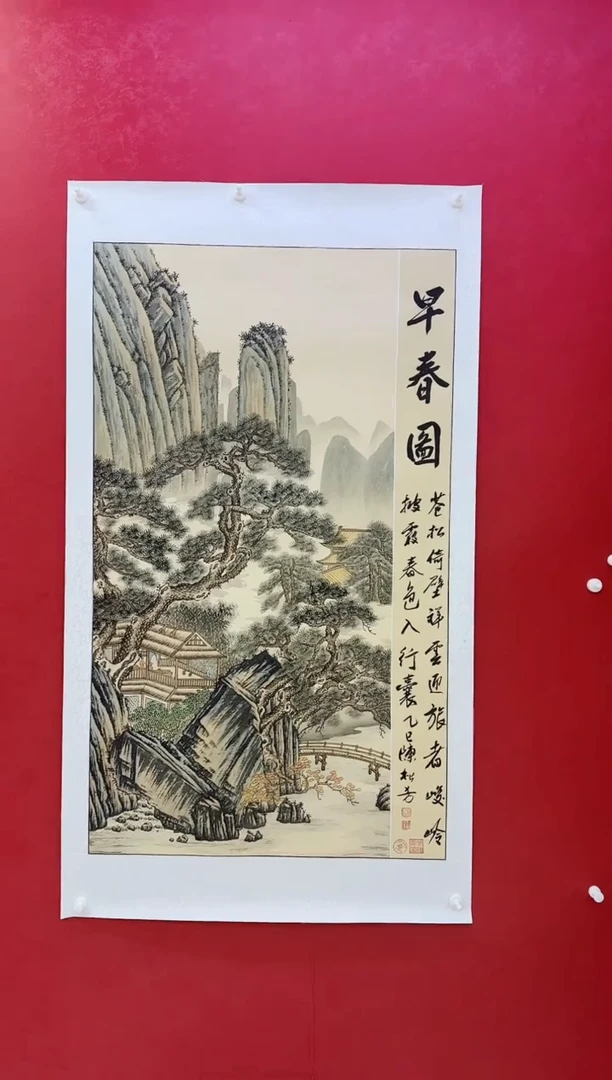 早春圖
苍松倚壁祥雲迎旅者峻岭
披霞春色入行囊 乙巳陳松芳